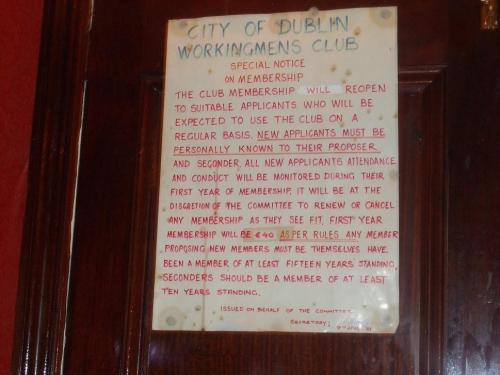 CITY OF DUBLIN
WORKINGMENS CLUB
SPECIAL NOTICE
ON MEMBERSHIP
THE CLUB MEMBERSHIP WILL REOPEN
TO SUITABLE APPLICANTS WHO WILL BE
EXPECTED TO USE THE CLUB ON A
REGULAR BASIS. NEW APPLICANTS MUST BE
PERSONALLY KNOWN TO THEIR PROPOSER
AND SECONDER, ALL NEW APPLICANTS ATTENDANCE
AND CONDUCT WILL BE MONITORED DURING THEIR
FIRST YEAR OF MEMBERSHIP, IT WILL BE AT THE
DISCRETION OF THE COMMITTEE TO RENEW OR CANCEL
ANY MEMBERSHIP AS THEY SEE FIT, FIRST YEAR
MEMBERSHIP WILL BE €40 AS PER RULES ANY MEMBER
PROPOSING NEW MEMBERS MUST BE THEMSELVES HAVE
BEEN A MEMBER OF AT LEAST FIFTEEN YEARS STANDING,
SECONDERS SHOULD BE A MEMBER OF AT LEAST
TEN YEARS STANDING.
ISSUED ON BEHALF OF THE COMMITTEE
SECRETARY: